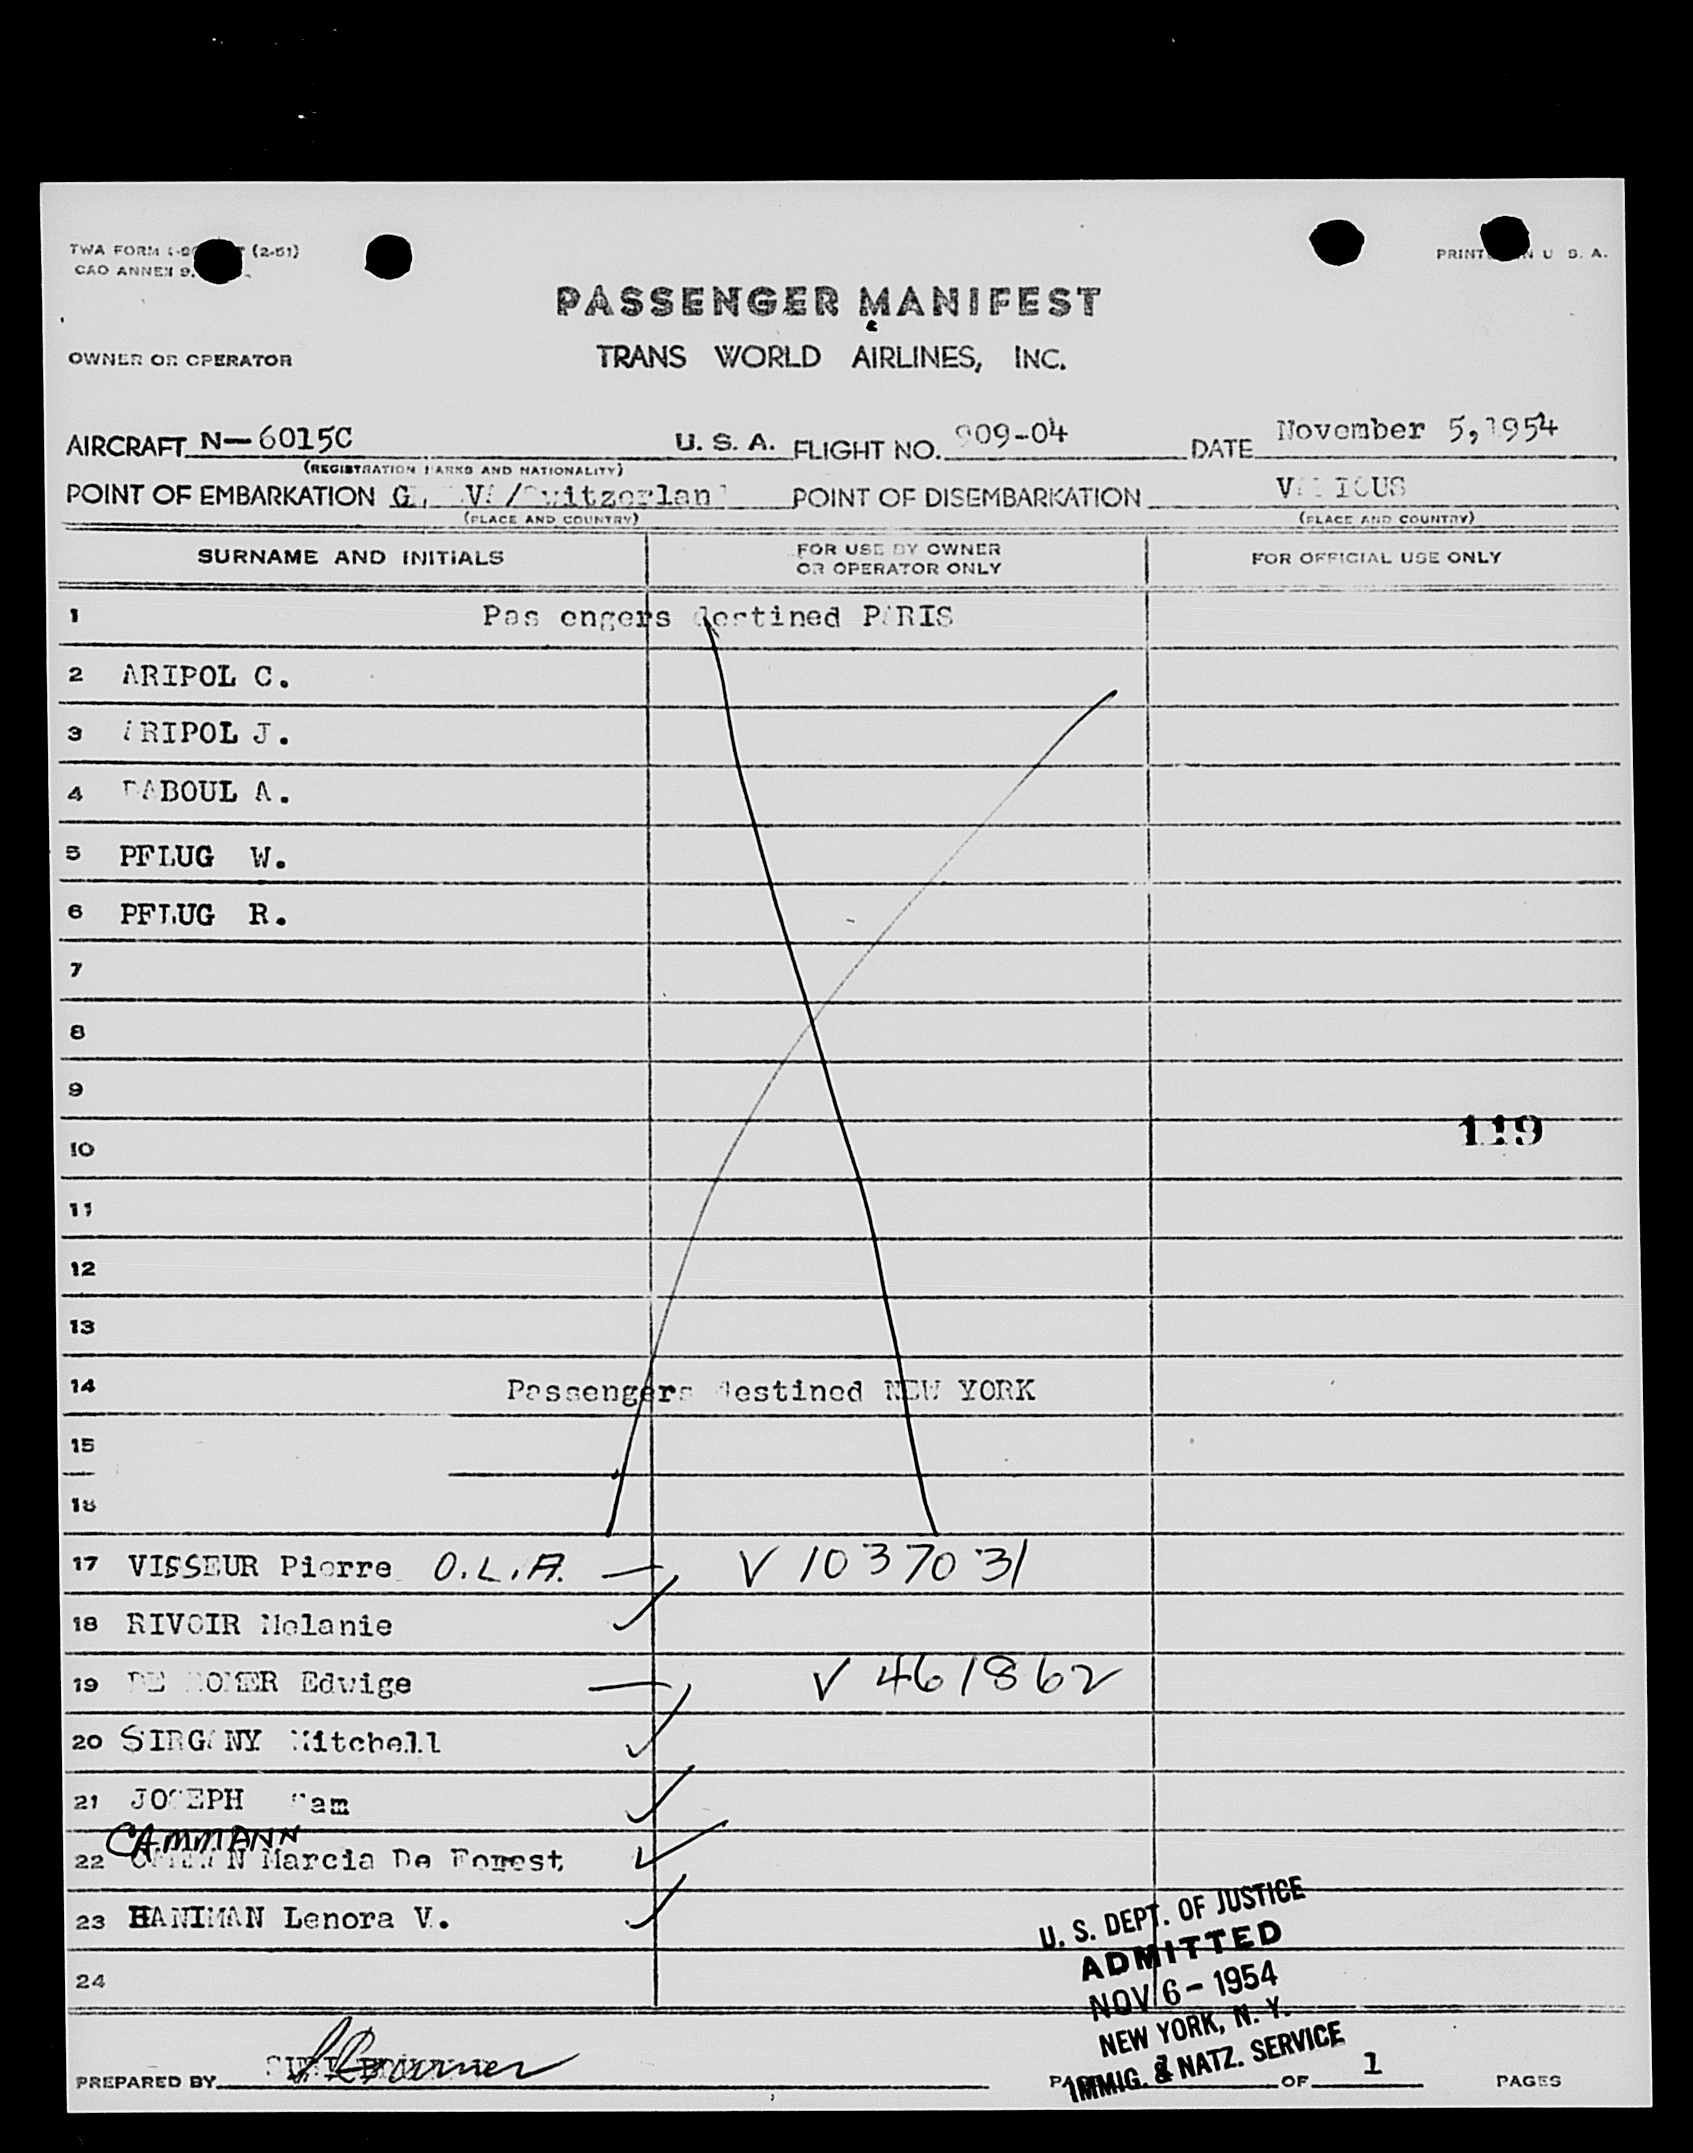 TWA FORM (2-51)
CAO ANNEX 9,
PRINT U S. A.
PASSENGER MANIFEST
OWNER OR OPERATOR TRANS WORLD AIRLINES, INC.
AIRCRAFT N-6015C U. S. A. FLIGHT NO. 909-04 DATE November 5, 1954
(REGISTRATION MARKS AND NATIONALITY)
POINT OF EMBARKATION POINT OF DISEMBARKATION
(PLACE AND COUNTRY) (PLACE AND COUNTRY)
SURNAME AND INITIALS FOR USE BY OWNER OR OPERATOR ONLY FOR OFFICIAL USE ONLY
1 Pas engers destined PARIS
2 ARIPOL C.
3 ARIPOL J.
4 DABOUL A.
5 PFLUG W.
6 PFLUG R.
7
8
9
119
10
11
12
13
14 Passengers destined NEW YORK
15
16
17 VISSEUR Pierre O.L.A. — V 1037031
18 RIVOIR Melanie ✓
19 DE Edwige — V 461862
20 SIRGANY Mitchell ✓
21 JOSEPH Sam ✓
CAMMANN
22 Marcia De Forest ✓
23 HANIMAN Lenora V. ✓
24
U. S. DEPT. OF JUSTICE
ADMITTED
NOV 6 - 1954
NEW YORK, N. Y.
IMMIG. & NATZ. SERVICE
PREPARED BY OF 1 PAGES